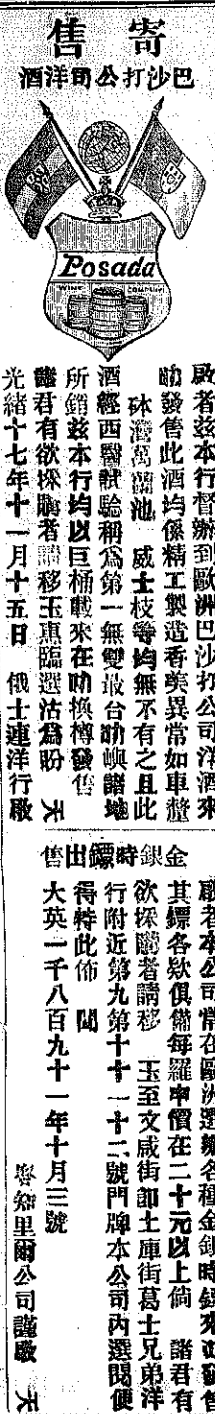 寄售
巴沙打公司洋酒
Posada
WINE COMPANY
啟者茲本行督辦到歐洲巴沙打公司洋酒來
叻發售此酒均係精工製造香美異常如車釐
砵濕萬蘭池 威士枝等均無不有之且此
酒經西醫試驗稱為第一無雙最合叻嶼諸地
所銷茲本行均以巨桶載來在叻換樽發售
諸君有欲採購者請移玉惠臨選沽為盼 天
光緒十七年十一月十五日 俄士連洋行啟
金銀時鏢出售
啟者本公司常在歐洲選辦各種金銀時鏢來叻發售
其鏢各欵俱備每羅申價在二十元以上倘 諸君有
欲採購者請移 玉至文咸街即土庫街葛士兄弟洋
行附近第九第十十一十二號門牌本公司內選閱便
得特此佈 聞
大英一千八百九十一年十月三號
知里爾公司謹啟 天